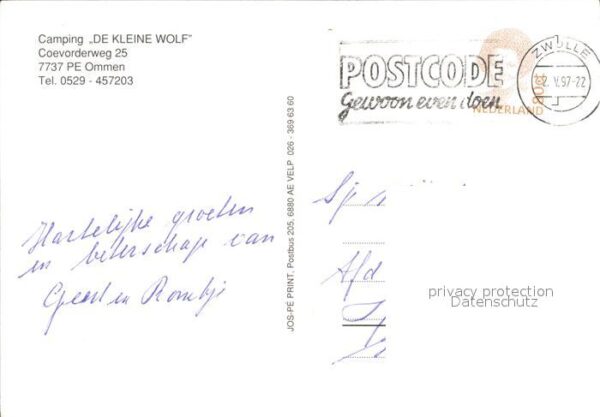 Camping „DE KLEINE WOLF"
Coevorderweg 25
7737 PE Ommen
Tel. 0529 - 457203
POSTCODE
Gewoon even doen
ZWOLLE
V.97-22
80
NEDERLAND
JOS-PE PRINT, Postbus 205, 6880 AE VELP 026 - 369 63 60
Hartelijke groeten
en beterschap van
Geert en
Afd
privacy protection
Datenschutz